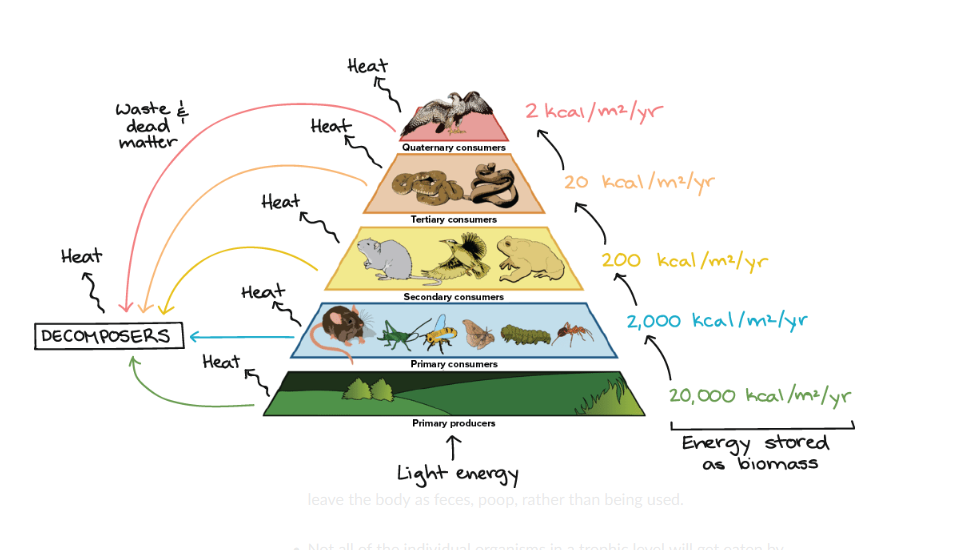 Heat
Waste &
dead
matter
2 kcal/m²/yr
Heat
Quaternary consumers
20 kcal/m²/yr
Heat
Tertiary consumers
Heat
200 kcal/m²/yr
Heat
Secondary consumers
2,000 kcal/m²/yr
DECOMPOSERS
Heat
Primary consumers
20,000 kcal/m²/yr
Primary producers
Energy stored
as biomass
Light energy
leave the body as feces, poop, rather than being used.
• Not all of the individual organisms in a trophic level will get eaten by